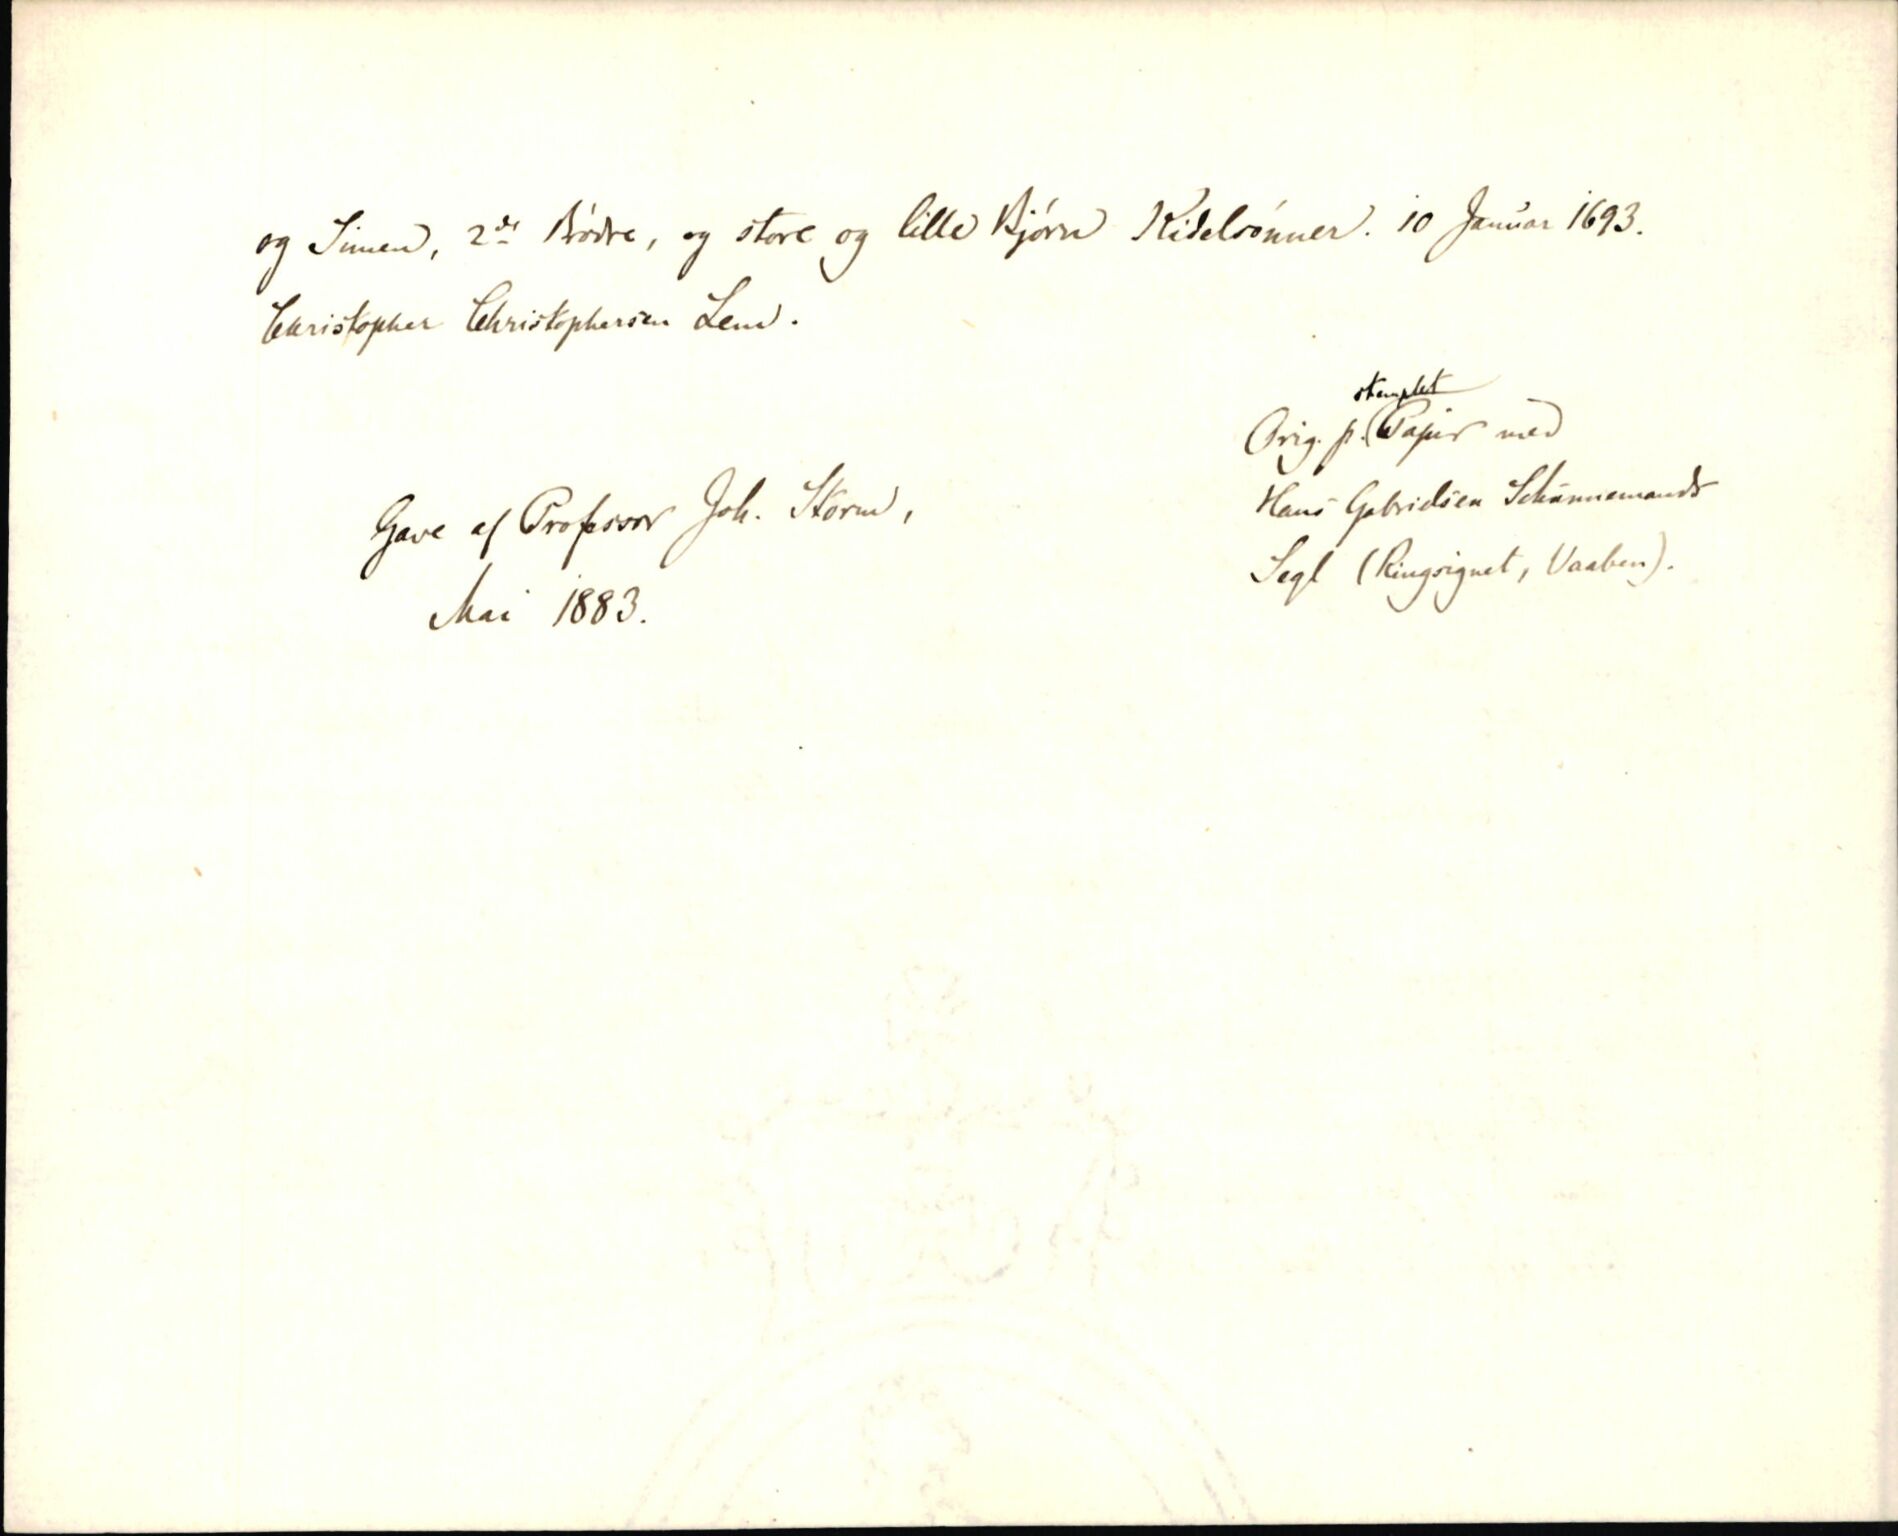 og Simen, 2de Brødre, og store og lille Bjørn Kidelsønner. 10 Januar 1693.
Christopher Christophersen Lem.
Orig. p. stemplet Papir med
Hans Gabrielsen Schünnemands
Segl (Ringsignet, Vaaben).
Gave af Professor Joh. Storm,
Mai 1883.